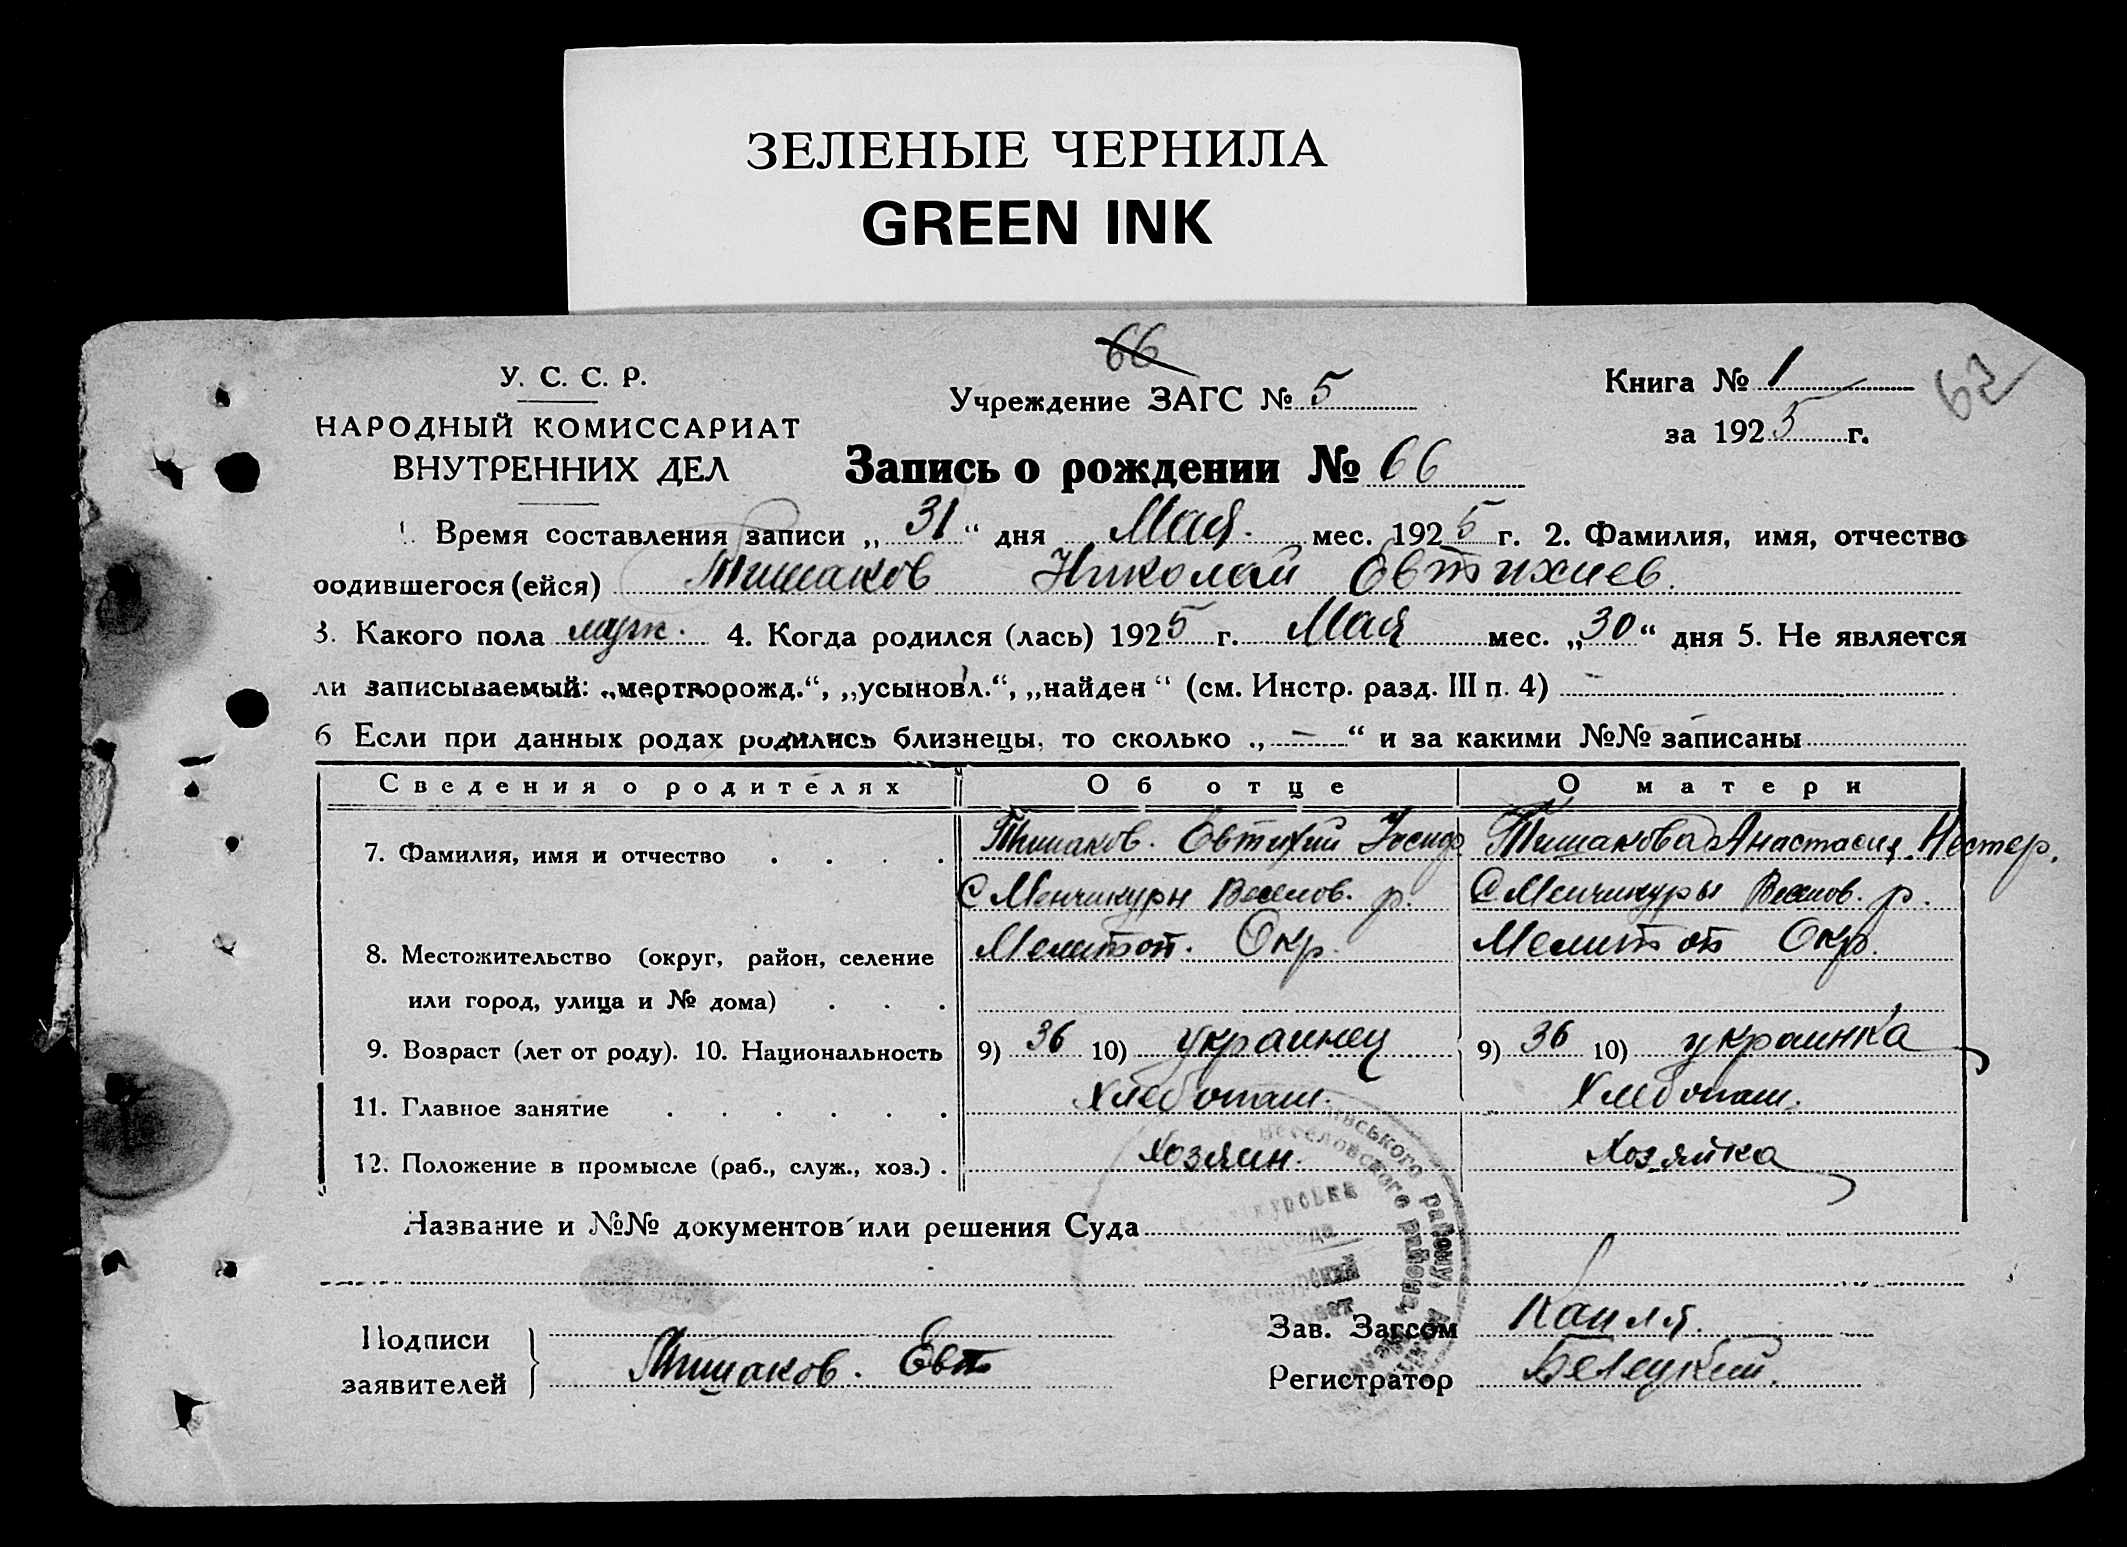 ЗЕЛЕНЫЕ ЧЕРНИЛА
GREEN INK
66
62
У. С. С. Р.
НАРОДНЫЙ КОМИССАРИАТ
ВНУТРЕННИХ ДЕЛ
Учреждение ЗАГС № 5
Книга № 1
за 1925 г.
Запись о рождении № 66
1. Время составления записи „31“ дня Мая. мес. 1925 г. 2. Фамилия, имя, отчество
родившегося (ейся) Тишаков Николай Евтихиев.
3. Какого пола муж. 4. Когда родился (лась) 1925 г. Мая мес. „30“ дня 5. Не является
ли записываемый: „мертворожд.“, „усыновл.“, „найден“ (см. Инстр. разд. III п. 4) –
6 Если при данных родах родились близнецы, то сколько „—“ и за какими №№ записаны
Сведения о родителях Об отце О матери
7. Фамилия, имя и отчество Тишаков. Евтихий Иосиф Тишакова Анастасия Нестер.
С Менчикуры Веселов. р. С Менчикуры Веселов. р.
8. Местожительство (округ, район, селение Мелитоп. Окр. Мелитоп Окр.
или город, улица и № дома)
9. Возраст (лет от роду). 10. Национальность 9) 36 10) украинец 9) 36 10) украинка
11. Главное занятие Хлебопаш. Хлебопаш.
12. Положение в промысле (раб., служ., хоз.) Хозяин. Хозяйка
Название и №№ документов или решения Суда
Подписи
заявителей Тишаков. Евт
Зав. Загсом Капля.
Регистратор Белецкий.
району
Веселовского района,